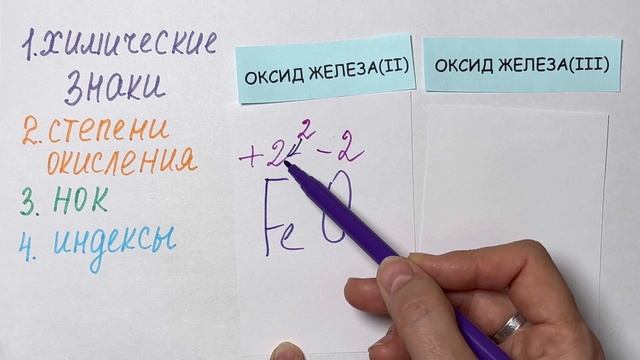 1. ХИМИЧЕСКИЕ
ЗНАКИ
2. СТЕПЕНИ
ОКИСЛЕНИЯ
3. НОК
4. ИНДЕКСЫ
ОКСИД ЖЕЛЕЗА(II)
2
+2 -2
Fe O
ОКСИД ЖЕЛЕЗА(III)